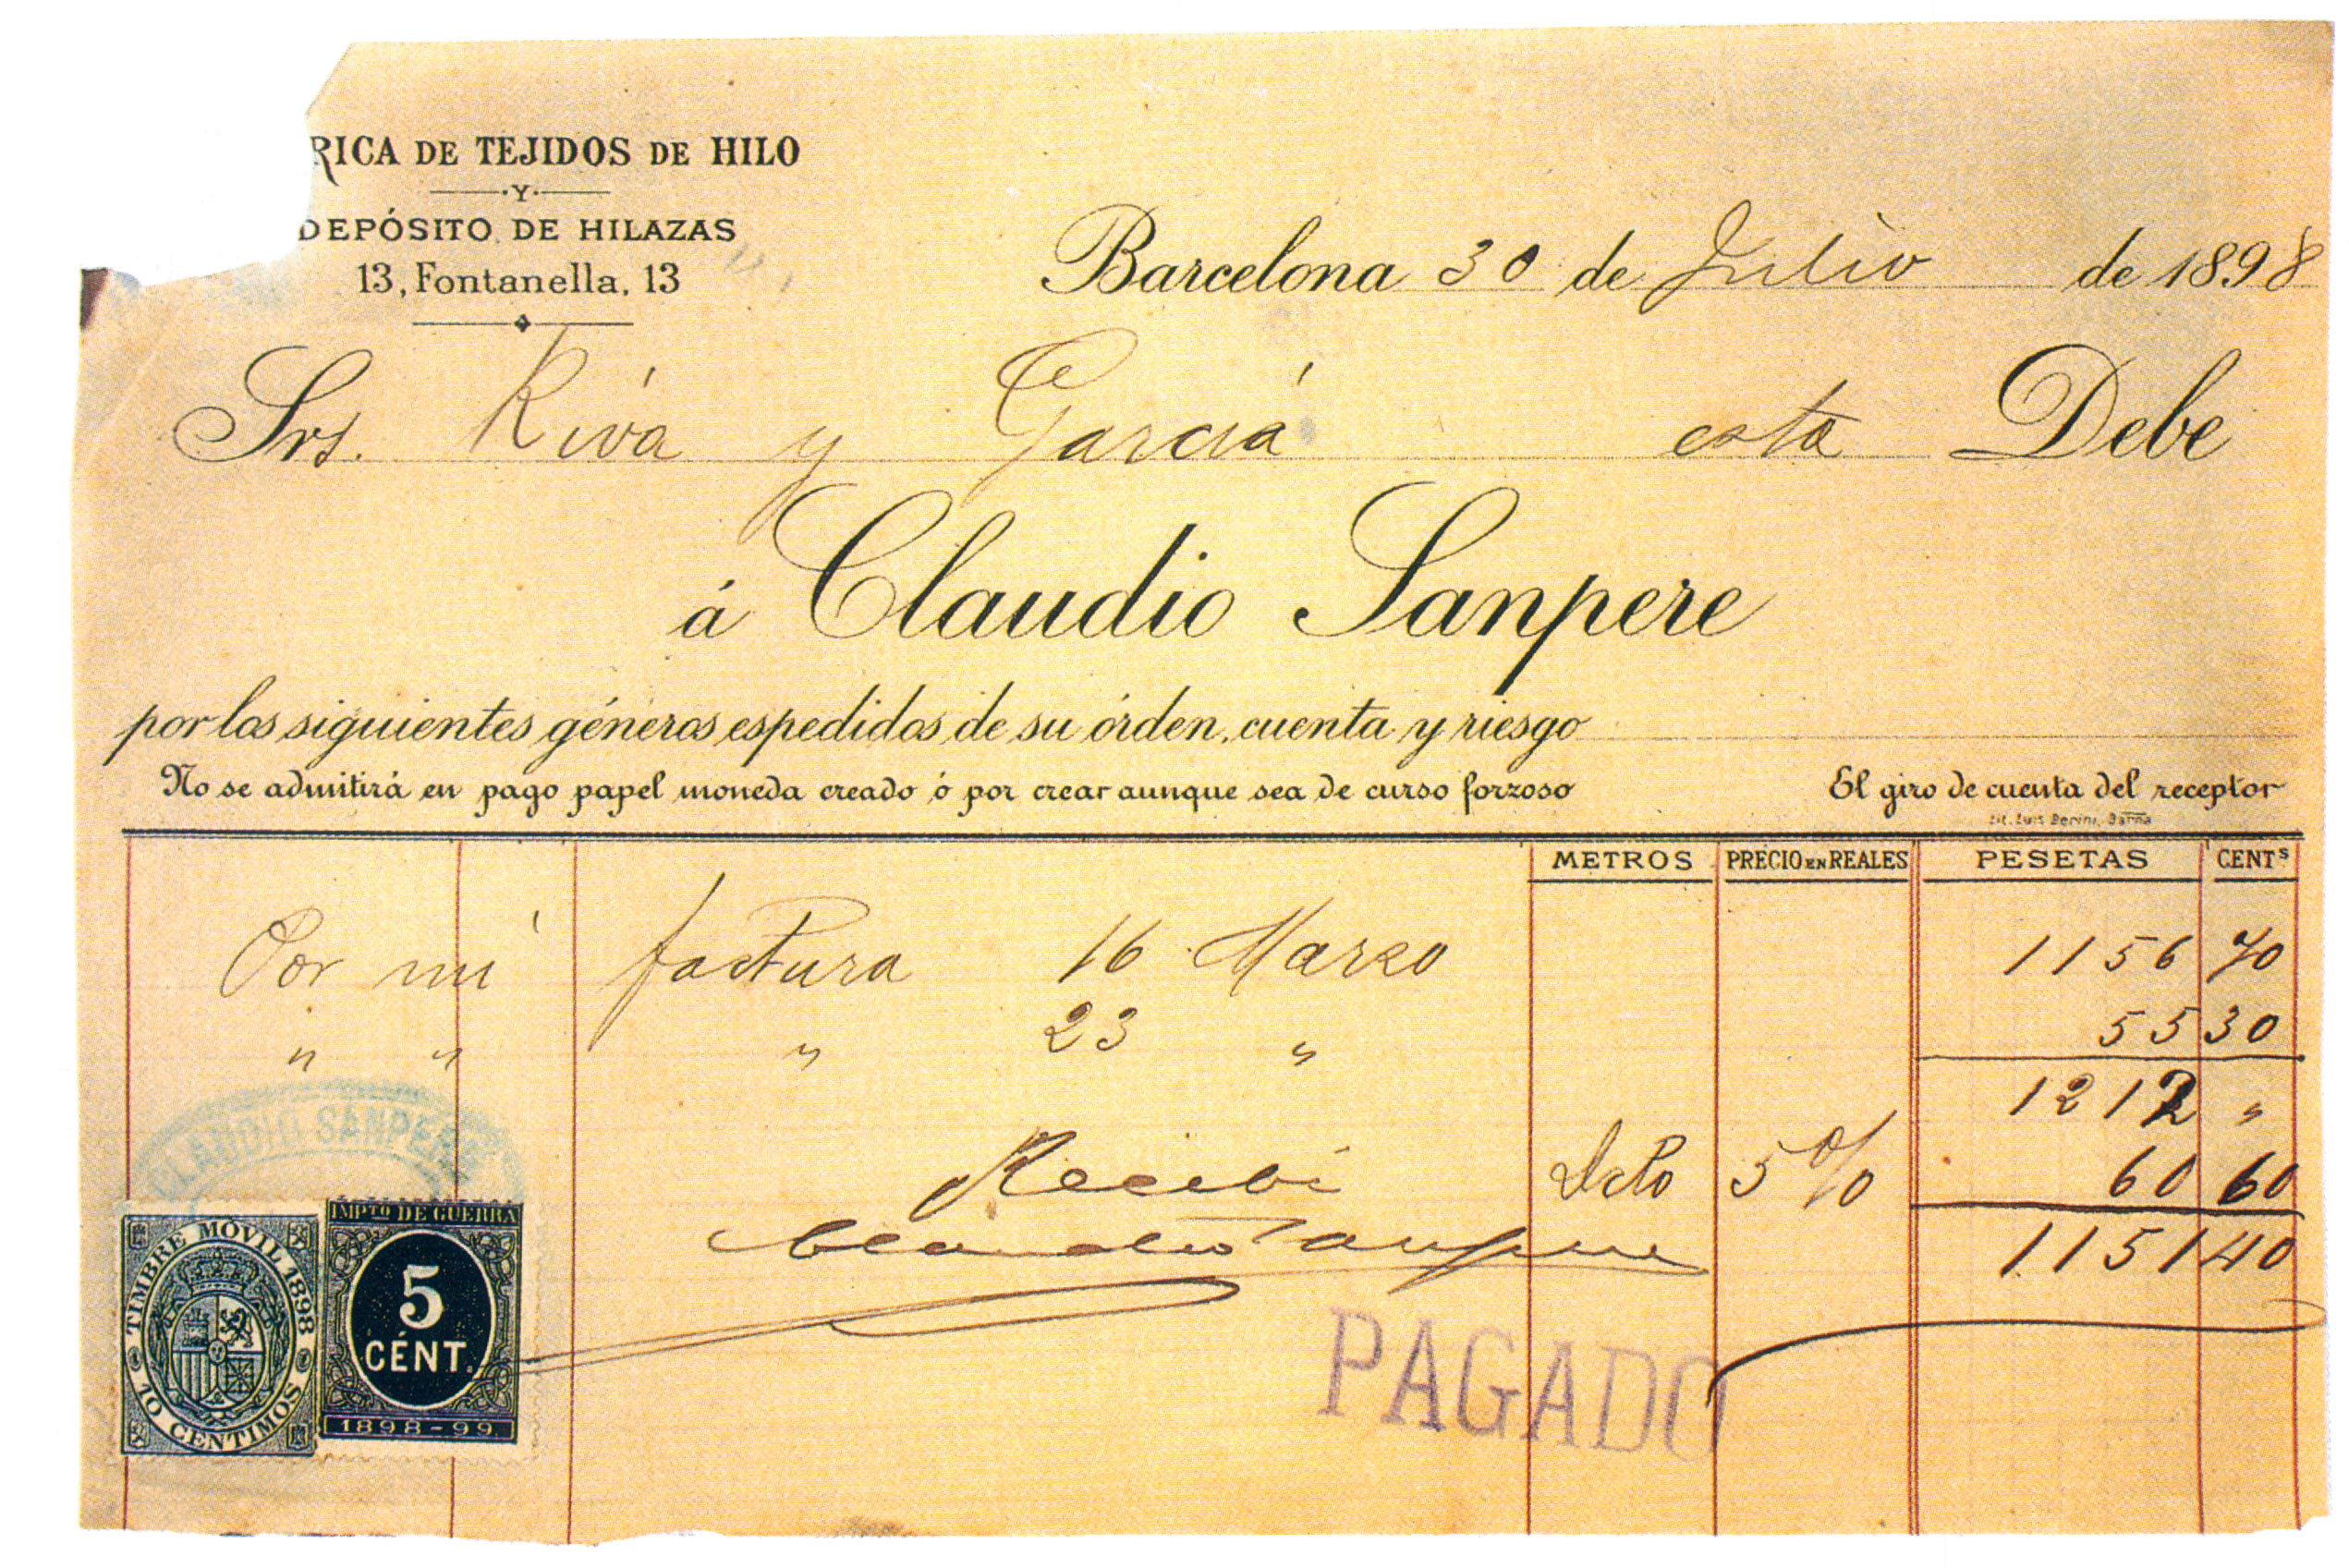 RICA DE TEJIDOS DE HILO
·Y·
DEPÓSITO DE HILAZAS
13, Fontanella, 13
Barcelona 30 de Julio de 1898
Srs. Riva y García esta Debe
á Claudio Sanpere
por los siguientes géneros espedidos de su órden, cuenta y riesgo
No se admitirá en pago papel moneda creado ó por crear aunque sea de curso forzoso El giro de cuenta del receptor
Lit. Luis Berini, Barna
METROS PRECIO EN REALES PESETAS CENTS
Por mi factura 16 Marzo 1156 70
" " " 23 " 55 30
1212 "
Recibí Dcto 5 % 60 60
Claudio Sanpere 1151 40
CLAUDIO SANPERE
TIMBRE MOVIL 1898
10 CENTIMOS
IMPTO DE GUERRA
5
CÉNT.
1898-99
PAGADO